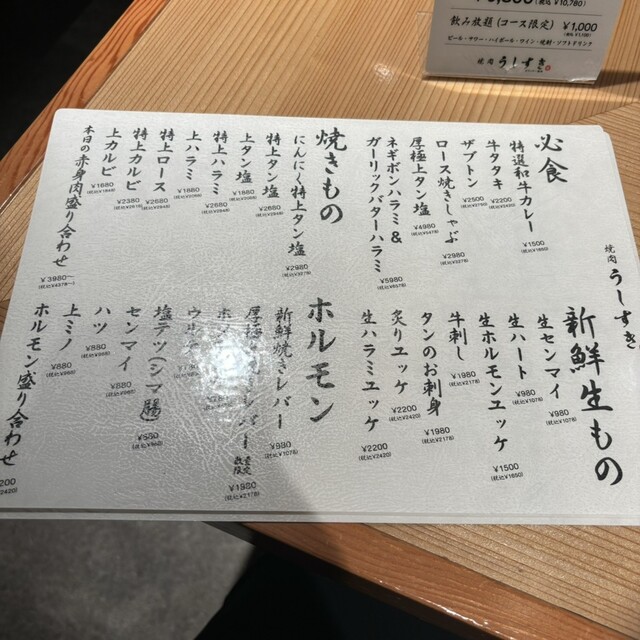 (税込 ¥10,780)
飲み放題(コース限定) ¥1,000
ビール・サワー・ハイボール・ワイン・焼酎・ソフトドリンク
焼肉 うしすき
焼肉 うしすき
必食
特選和牛カレー
¥1500
(税込¥1650)
牛タタキ
¥2200
(税込¥2420)
ザブトン
¥2500
(税込¥2750)
ロース焼きしゃぶ
¥2980
(税込¥3278)
厚極上タン塩
¥4980
(税込¥5478)
ネギボンハラミ&
ガーリックバターハラミ
¥5980
(税込¥6578)
焼きもの
にんにく特上タン塩
¥2980
(税込¥3278)
特上タン塩
¥2680
(税込¥2948)
上タン塩
¥1880
(税込¥2068)
特上ハラミ
¥2680
(税込¥2948)
上ハラミ
¥1880
(税込¥2068)
特上ロース
¥2680
(税込¥2948)
特上カルビ
¥2380
(税込¥2618)
上カルビ
¥1680
(税込¥1848)
本日の赤身肉盛り合わせ
¥3980~
(税込¥4378~)
新鮮生もの
生センマイ
¥980
(税込¥1078)
生ハート
¥980
(税込¥1078)
生ホルモンユッケ
¥1500
(税込¥1650)
牛刺し
¥1980
(税込¥2178)
タンのお刺身
¥1980
(税込¥2178)
炙りユッケ
¥2200
(税込¥2420)
生ハラミユッケ
¥2200
(税込¥2420)
ホルモン
新鮮焼きレバー
¥980
(税込¥1078)
厚極
レバー
数量限定
¥1980
(税込¥2178)
塩テツ(シマ腸)
¥580
センマイ
¥880
(税込¥968)
ハツ
¥880
(税込¥968)
上ミノ
¥880
(税込¥968)
ホルモン盛り合わせ